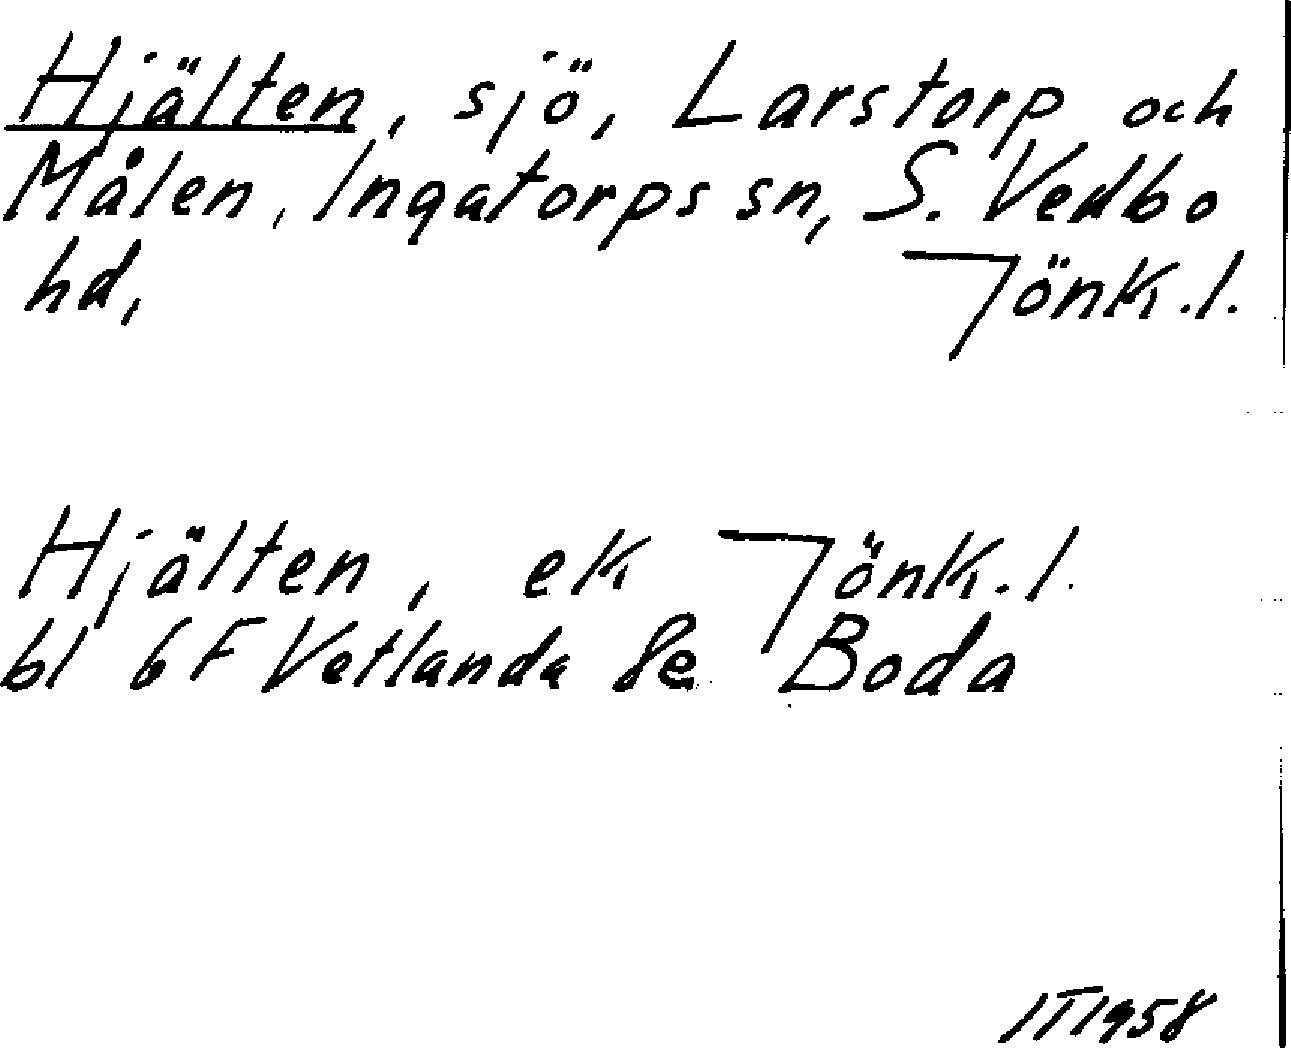 Hjälten, sjö, Larstorp och
Målen, Ingatorps sn, S. Vedbo
hd, Jönk. l.
Hjälten, ek Jönk. l.
bl 6 F Vetlanda 8e Boda
IT 1958